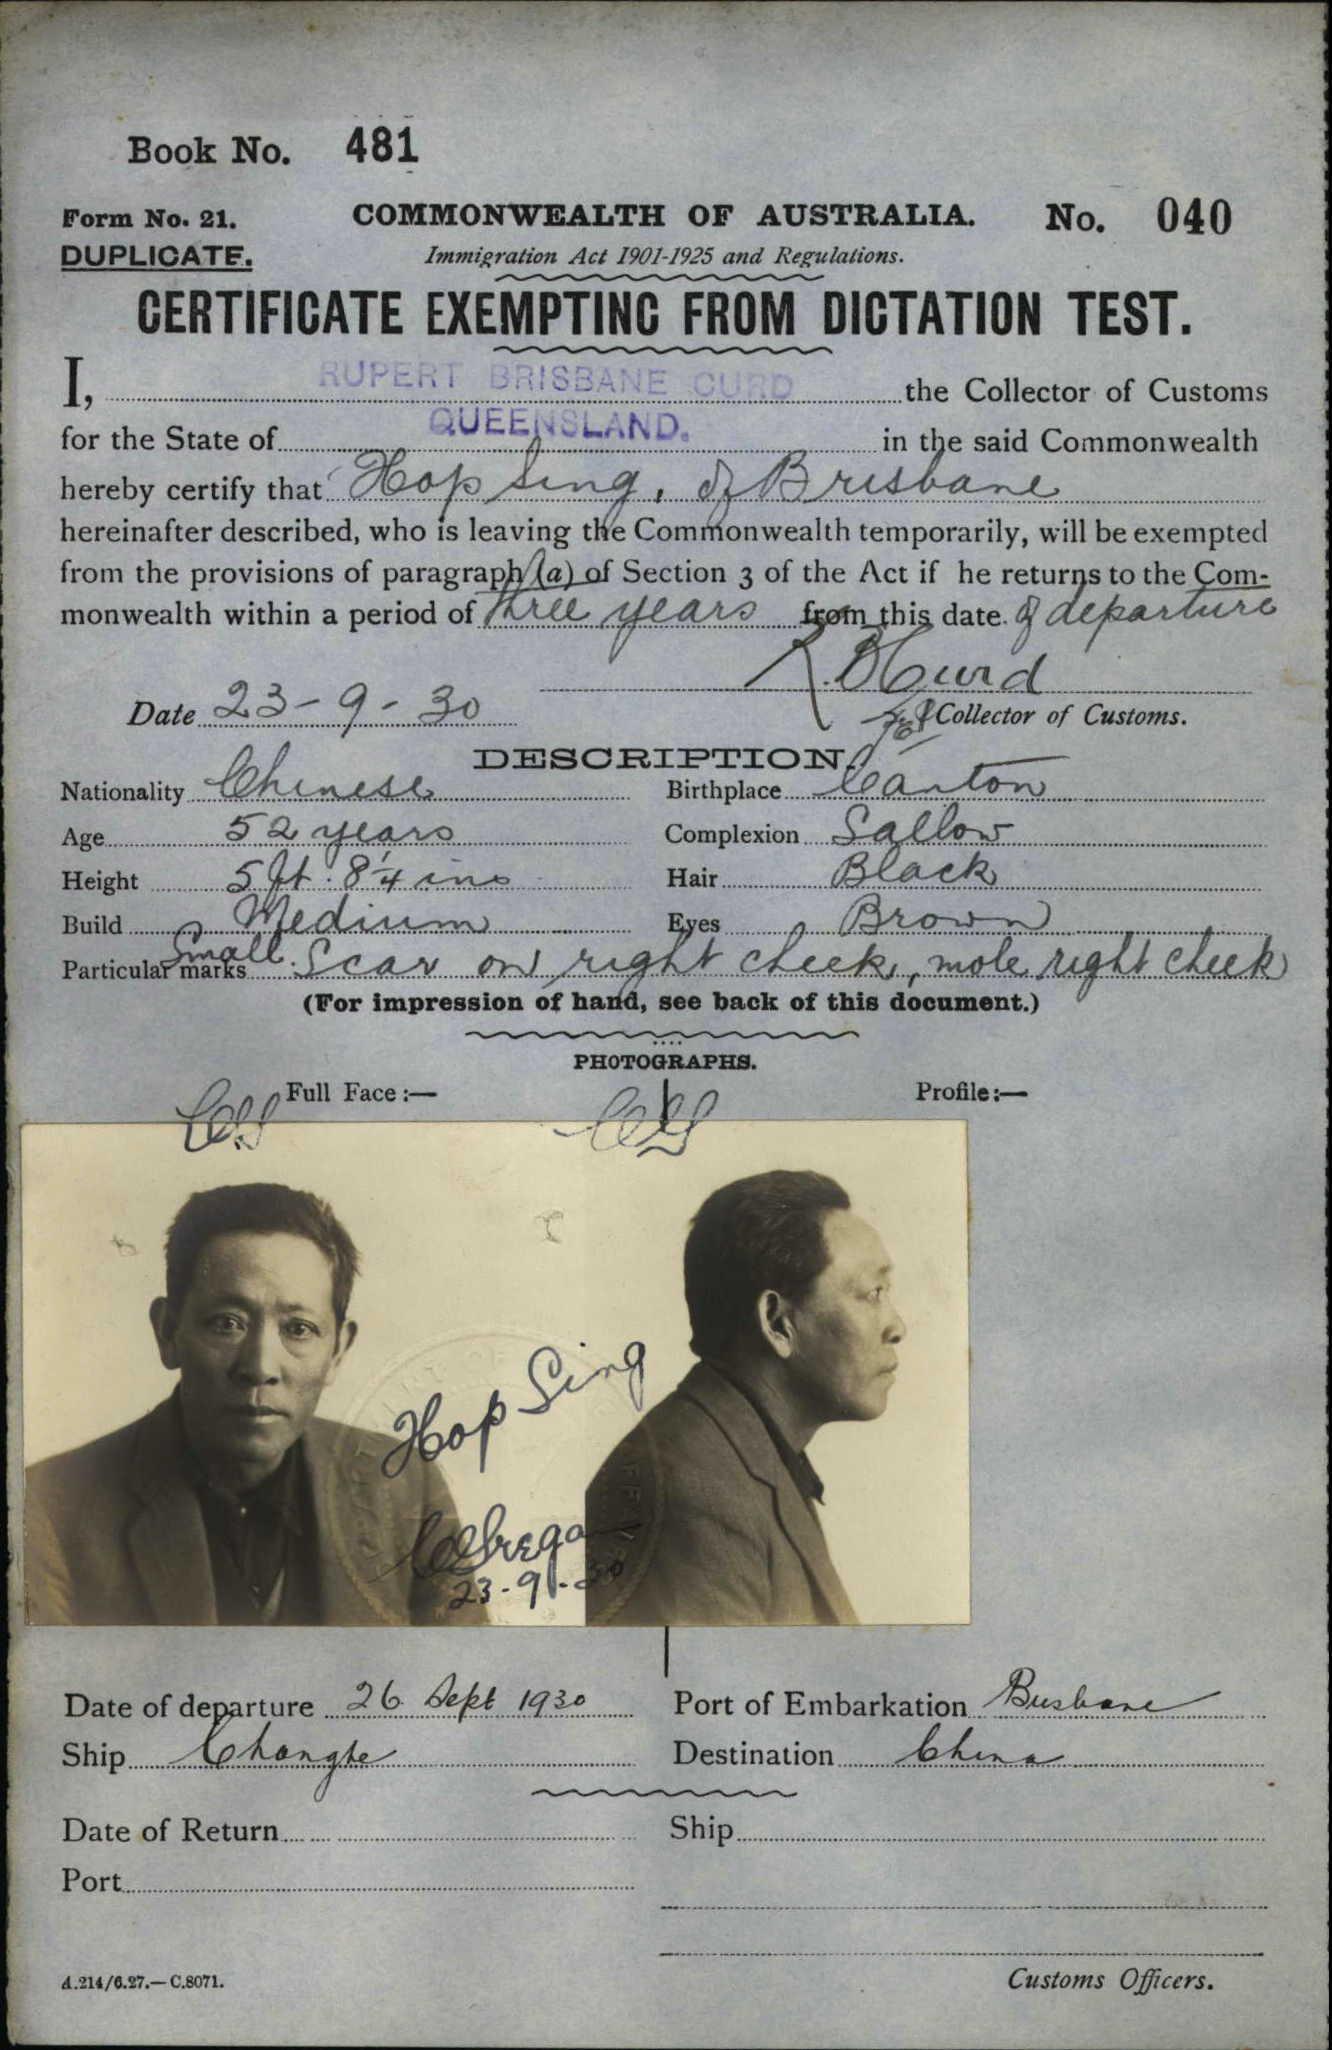 Book No. 481
Form No. 21. COMMONWEALTH OF AUSTRALIA. No. 040
DUPLICATE. Immigration Act 1901-1925 and Regulations.
CERTIFICATE EXEMPTING FROM DICTATION TEST.
I, RUPERT BRISBANE CURD the Collector of Customs
for the State of QUEENSLAND. in the said Commonwealth
hereby certify that Hop Sing, of Brisbane
hereinafter described, who is leaving the Commonwealth temporarily, will be exempted
from the provisions of paragraph (a) of Section 3 of the Act if he returns to the Com-
monwealth within a period of three years from this date of departure
R. B Curd
Date 23-9-30 Collector of Customs.
DESCRIPTION.
Nationality Chinese Birthplace Canton
Age 52 years Complexion Sallow
Height 5 ft. 8 1/4 ins Hair Black
Build Medium Eyes Brown
Particular marks Small Scar on right cheek, mole right cheek
(For impression of hand, see back of this document.)
PHOTOGRAPHS.
Full Face :— Profile :—
Hop Sing
23-9-30
Date of departure 26 Sept 1930 Port of Embarkation Brisbane
Ship Changte Destination China
Date of Return Ship
Port
A.214/6.27.—C.8071. Customs Officers.